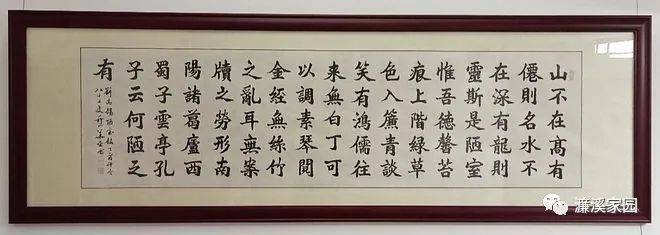 山不在高有
僊則名水不
在深有龍則
靈斯是陋室
惟吾德馨苔
痕上階緑草
色入簾青談
笑有鴻儒往
来無白丁可
以調素琴閲
金經無絲竹
之亂耳無案
牘之勞形南
陽諸葛廬西
蜀子雲亭孔
子云何陋之
有
劉禹錫陋室銘
濂溪家园